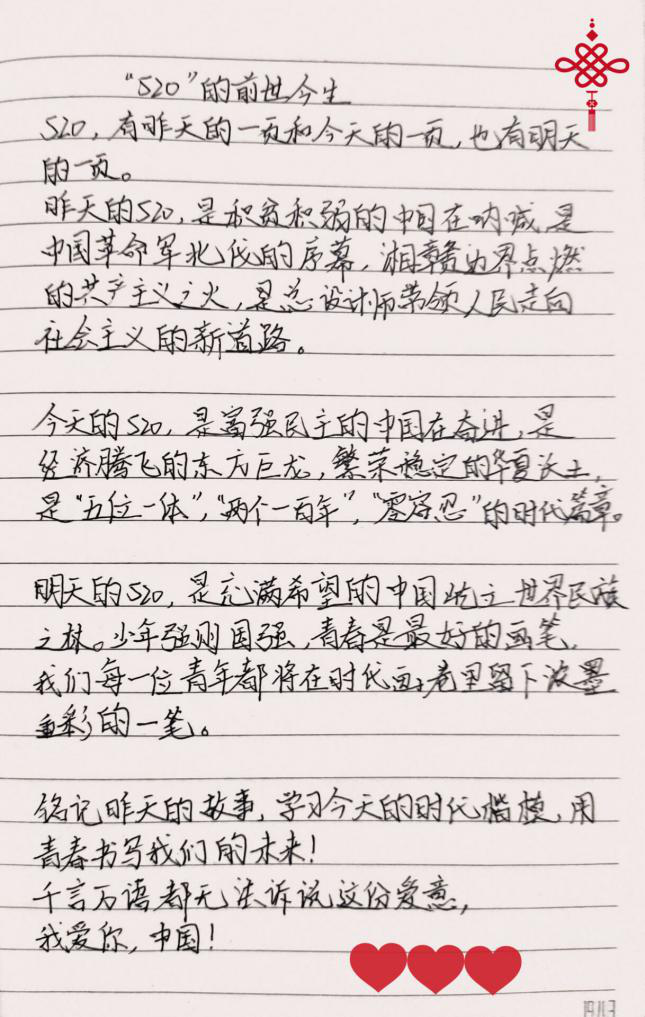 “520”的前世今生
520，有昨天的一页和今天的一页，也有明天
的一页。
昨天的520，是积贫积弱的中国在呐喊，是
中国革命军北伐的序幕，湘赣边界点燃
的共产主义之火，是总设计师带领人民走向
社会主义的新道路。
今天的520，是富强民主的中国在奋进，是
经济腾飞的东方巨龙，繁荣稳定的华夏沃土，
是“五位一体”，“两个一百年”，“零容忍”的时代篇章。
明天的520，是充满希望的中国屹立世界民族
之林。少年强则国强，青春是最好的画笔，
我们每一位青年都将在时代画卷里留下浓墨
重彩的一笔。
铭记昨天的故事，学习今天的时代楷模，用
青春书写我们的未来！
千言万语都无法诉说这份爱意，
我爱你，中国！